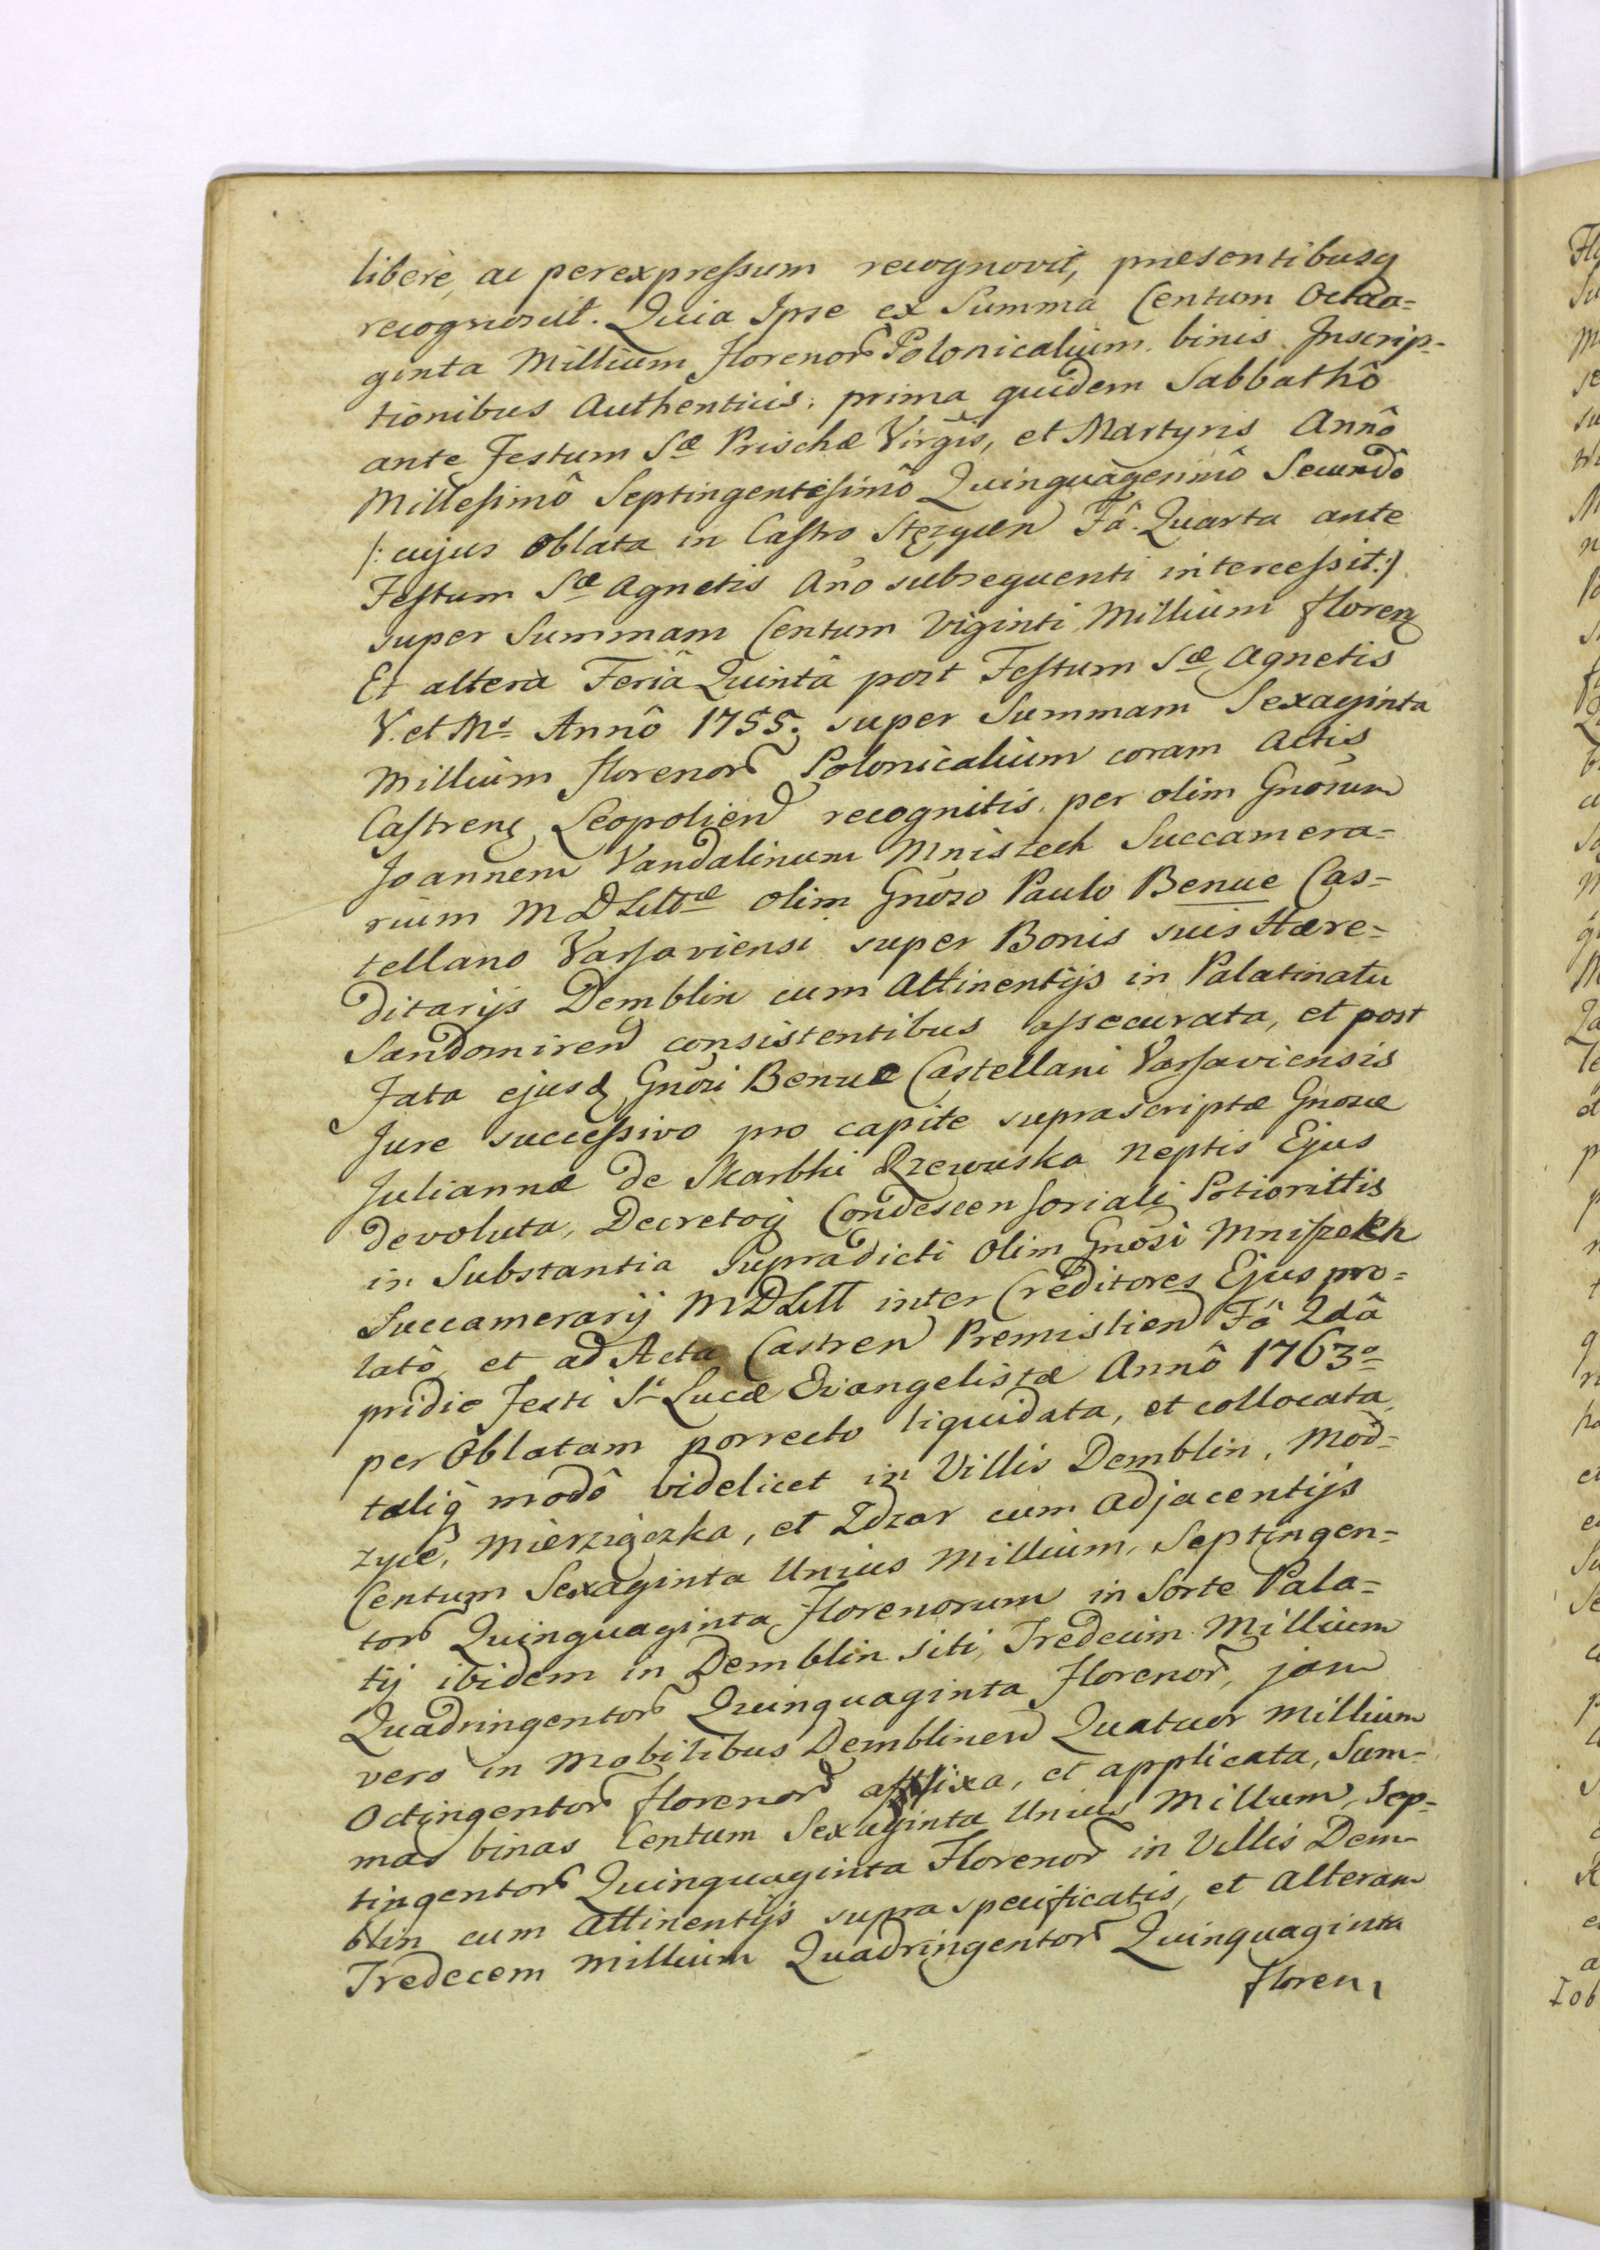 liberè, ac perexpressum recognovit, praesentibusq
recognoscit. Quia Ipse ex Summa Centum Octua-
ginta Millium florenor Polonicalium binis Inscrip-
tionibus Authenticis: prima quidem Sabbathô
ante Festum Sæ Priscæ Virgis, et Martyris Annô
Millesimô Septingentesimô Quinquagesimô Secundô
/: cujus oblata in Castro Stęzycen Fâ Quarta ante
Festum Sæ Agnetis Año subsequenti intercessit :/
super Summam Centum Viginti Millium floren
Et alterà Feriâ Quintâ post Festum Sæ Agnetis
V. et Ms Annô 1755. super Summam Sexaginta
Millium florenor Polonicalium coram Actis
Castren Leopolien recognitis per olim Gnosum
Joannem Vandalinum Mniszech Succamera-
rium M D Littæ olim Gnoso Paulo Benue Cas-
tellano Varsaviensi super Bonis suis Hære-
ditarijs Demblin cum attinentijs in Palatinatu
Sandomiren consistentibus assecurata, et post
Fata ejusd Gnosi Benue Castellani Varsaviensis
Jure successivo pro capite suprascriptæ Gnosæ
Juliannæ de Skarbki Rzewuska neptis Ejus
devoluta, Decretoq Condescensoriali Potiorittis
in Substantia supradicti olim Gnosi Mniszech
Succamerarij M D Litt inter Creditores Ejus pro-
latô, et ad Acta Castren Premislien Fâ 2dâ
pridie Festi Si Lucæ Evangelistæ Annô 1763o
per Oblatam porrecto liquidata, et collocata,
taliq modô videlicet in Villis Demblin, Mod-
zyce, Mierziączka, et Zdzar cum adjacentijs
Centum Sexaginta Unius Millium, Septingen-
tor Quinquaginta Florenorum in Sorte Pala-
tij ibidem in Demblin siti, Tredecim Millium
Quadringentor Quinquaginta Florenor, jam
vero in Mobilibus Demblinen Quatuor Millium
Octingentor florenor affixa, et applicata, Sum-
mas binas Centum Sexaginta Unius Millium, Sep-
tingentor Quinquaginta Florenor in Villis Dem-
blin cum attinentijs supra specificatis, et alteram
Tredecem Millium Quadringentor Quinquaginta
floren